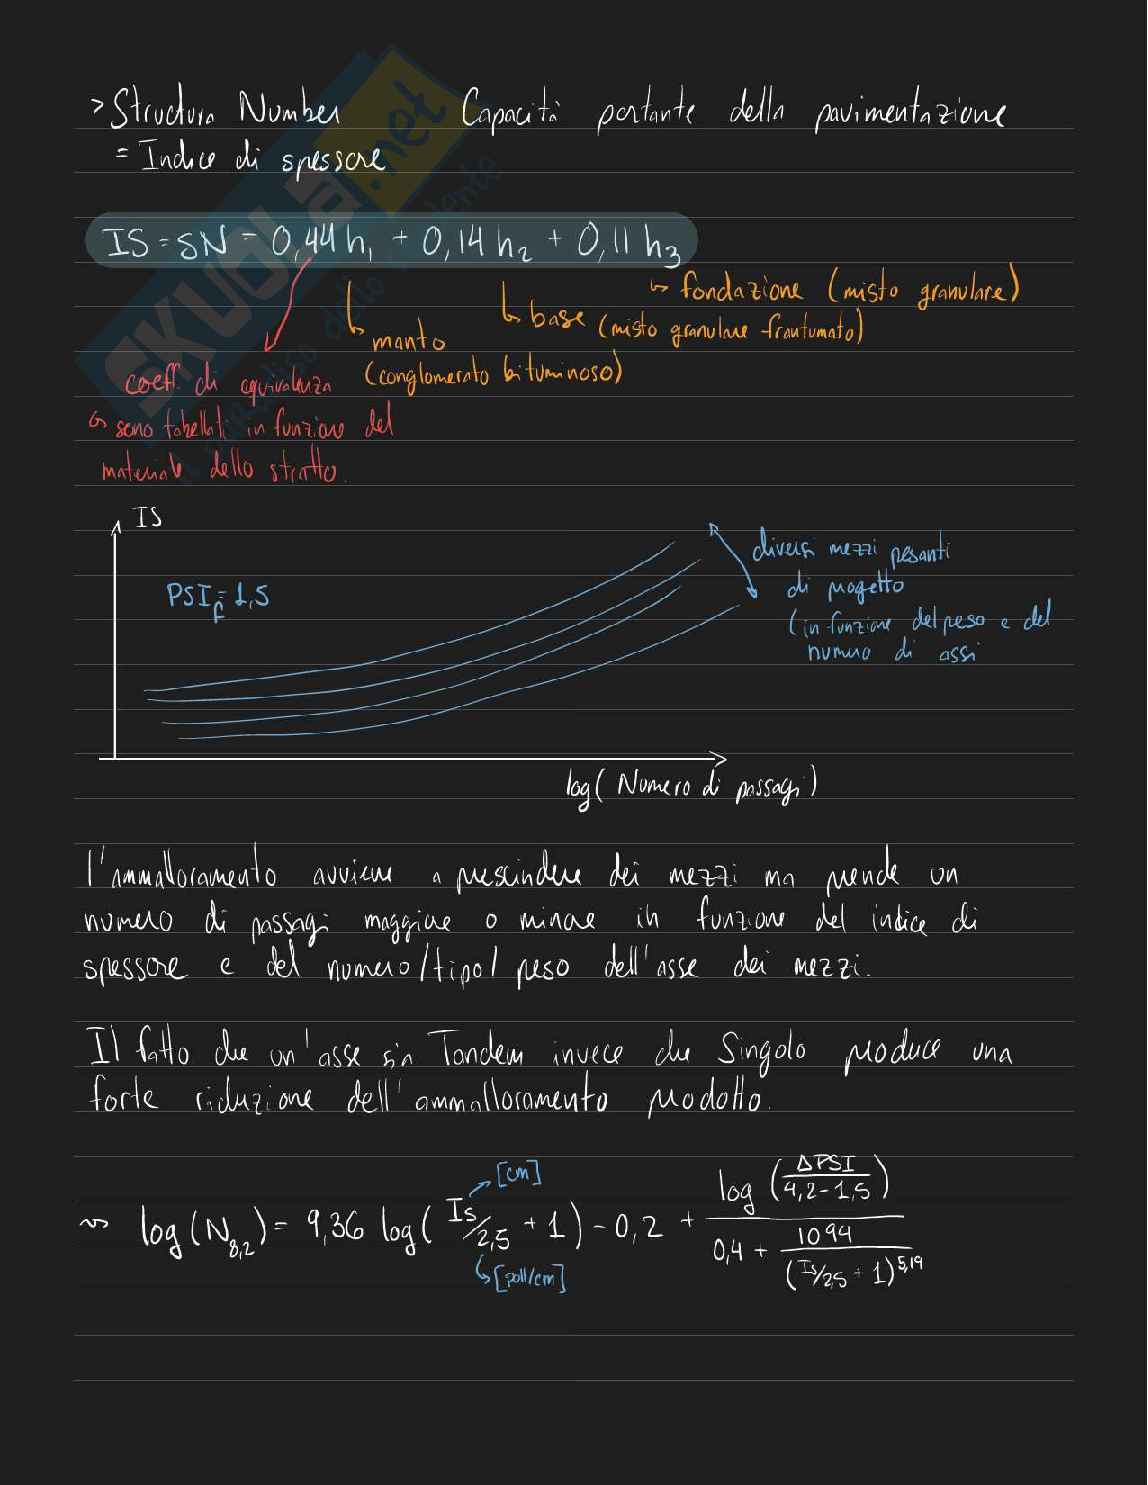 > Structura Number Capacità portante della pavimentazione
= Indice di spessore
IS = SN = 0,44 h₁ + 0,14 h₂ + 0,11 h₃
↳ fondazione (misto granulare)
↳ base (misto granulare frantumato)
↳ manto
(conglomerato bituminoso)
coeff. di equivalenza
↳ sono tabellati in funzione del
materiale dello stratto.
SKUOLA.net
IS
PSI_f = 1,5
diversi mezzi pesanti
di progetto
(in funzione del peso e del
numero di assi
log( Numero di passagi )
l'ammalloramento avviene a prescindere dei mezzi ma prende un
numero di passagi maggiore o minore in funzione del indice di
spessore e del numero/tipo/peso dell'asse dei mezzi.
Il fatto che un'asse sia Tandem invece che Singolo produce una
forte riduzione dell'ammalloramento prodotto.
[cm]
~> log(N_8,2) = 9,36 log( Is/2,5 + 1) - 0,2 + log (ΔPSI / 4,2-1,5) / 0,4 + 1094 / (Is/2,5 + 1)^5,19
↳ [poll/cm]